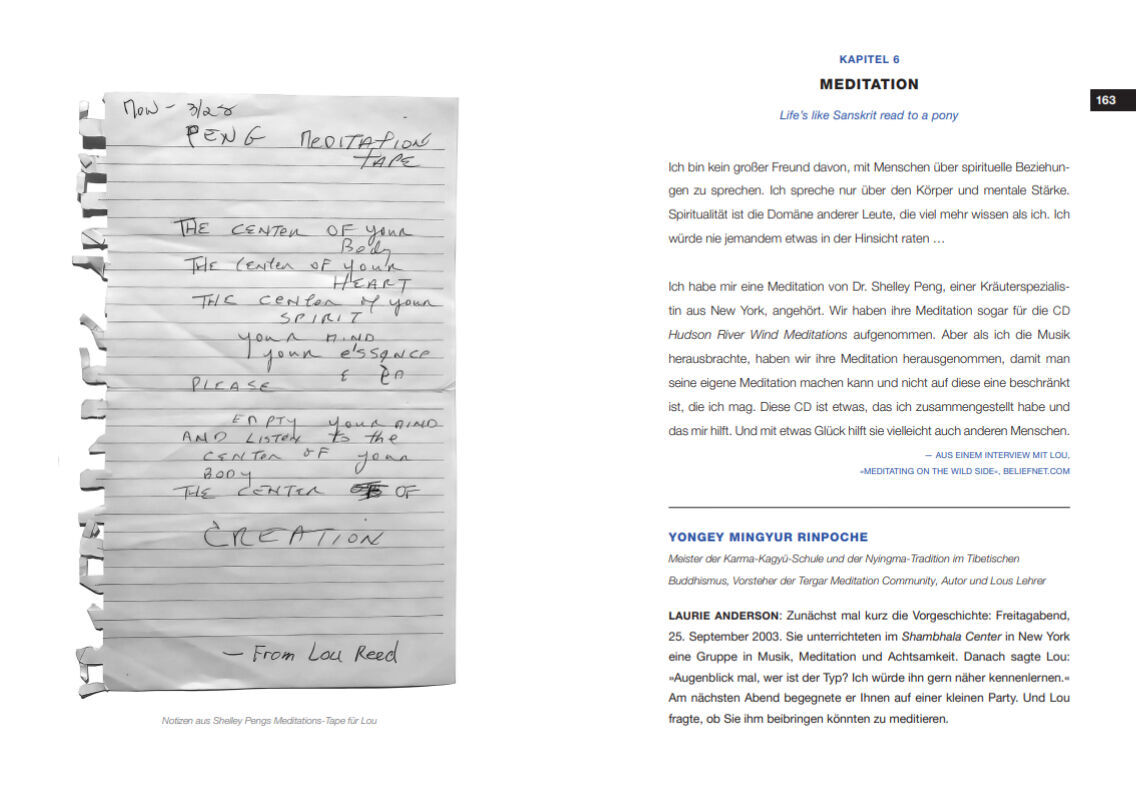 Mon - 3/28
PENG MEDITATION
TAPE
THE CENTER OF your
Body
THE CENTER OF your
HEART
THE CENTER of your
SPIRIT
your MIND
your e'ssence
PLEASE
EMPTY your MIND
AND LISTEN to the
CENTER OF your
BODY
THE CENTER OF
CREATION
— From Lou Reed
Notizen aus Shelley Pengs Meditations-Tape für Lou
KAPITEL 6
MEDITATION
163
Life's like Sanskrit read to a pony
Ich bin kein großer Freund davon, mit Menschen über spirituelle Beziehun-
gen zu sprechen. Ich spreche nur über den Körper und mentale Stärke.
Spiritualität ist die Domäne anderer Leute, die viel mehr wissen als ich. Ich
würde nie jemandem etwas in der Hinsicht raten …
Ich habe mir eine Meditation von Dr. Shelley Peng, einer Kräuterspezialis-
tin aus New York, angehört. Wir haben ihre Meditation sogar für die CD
Hudson River Wind Meditations aufgenommen. Aber als ich die Musik
herausbrachte, haben wir ihre Meditation herausgenommen, damit man
seine eigene Meditation machen kann und nicht auf diese eine beschränkt
ist, die ich mag. Diese CD ist etwas, das ich zusammengestellt habe und
das mir hilft. Und mit etwas Glück hilft sie vielleicht auch anderen Menschen.
— AUS EINEM INTERVIEW MIT LOU,
»MEDITATING ON THE WILD SIDE«, BELIEFNET.COM
YONGEY MINGYUR RINPOCHE
Meister der Karma-Kagyü-Schule und der Nyingma-Tradition im Tibetischen
Buddhismus, Vorsteher der Tergar Meditation Community, Autor und Lous Lehrer
LAURIE ANDERSON: Zunächst mal kurz die Vorgeschichte: Freitagabend,
25. September 2003. Sie unterrichteten im Shambhala Center in New York
eine Gruppe in Musik, Meditation und Achtsamkeit. Danach sagte Lou:
»Augenblick mal, wer ist der Typ? Ich würde ihn gern näher kennenlernen.«
Am nächsten Abend begegnete er Ihnen auf einer kleinen Party. Und Lou
fragte, ob Sie ihm beibringen könnten zu meditieren.